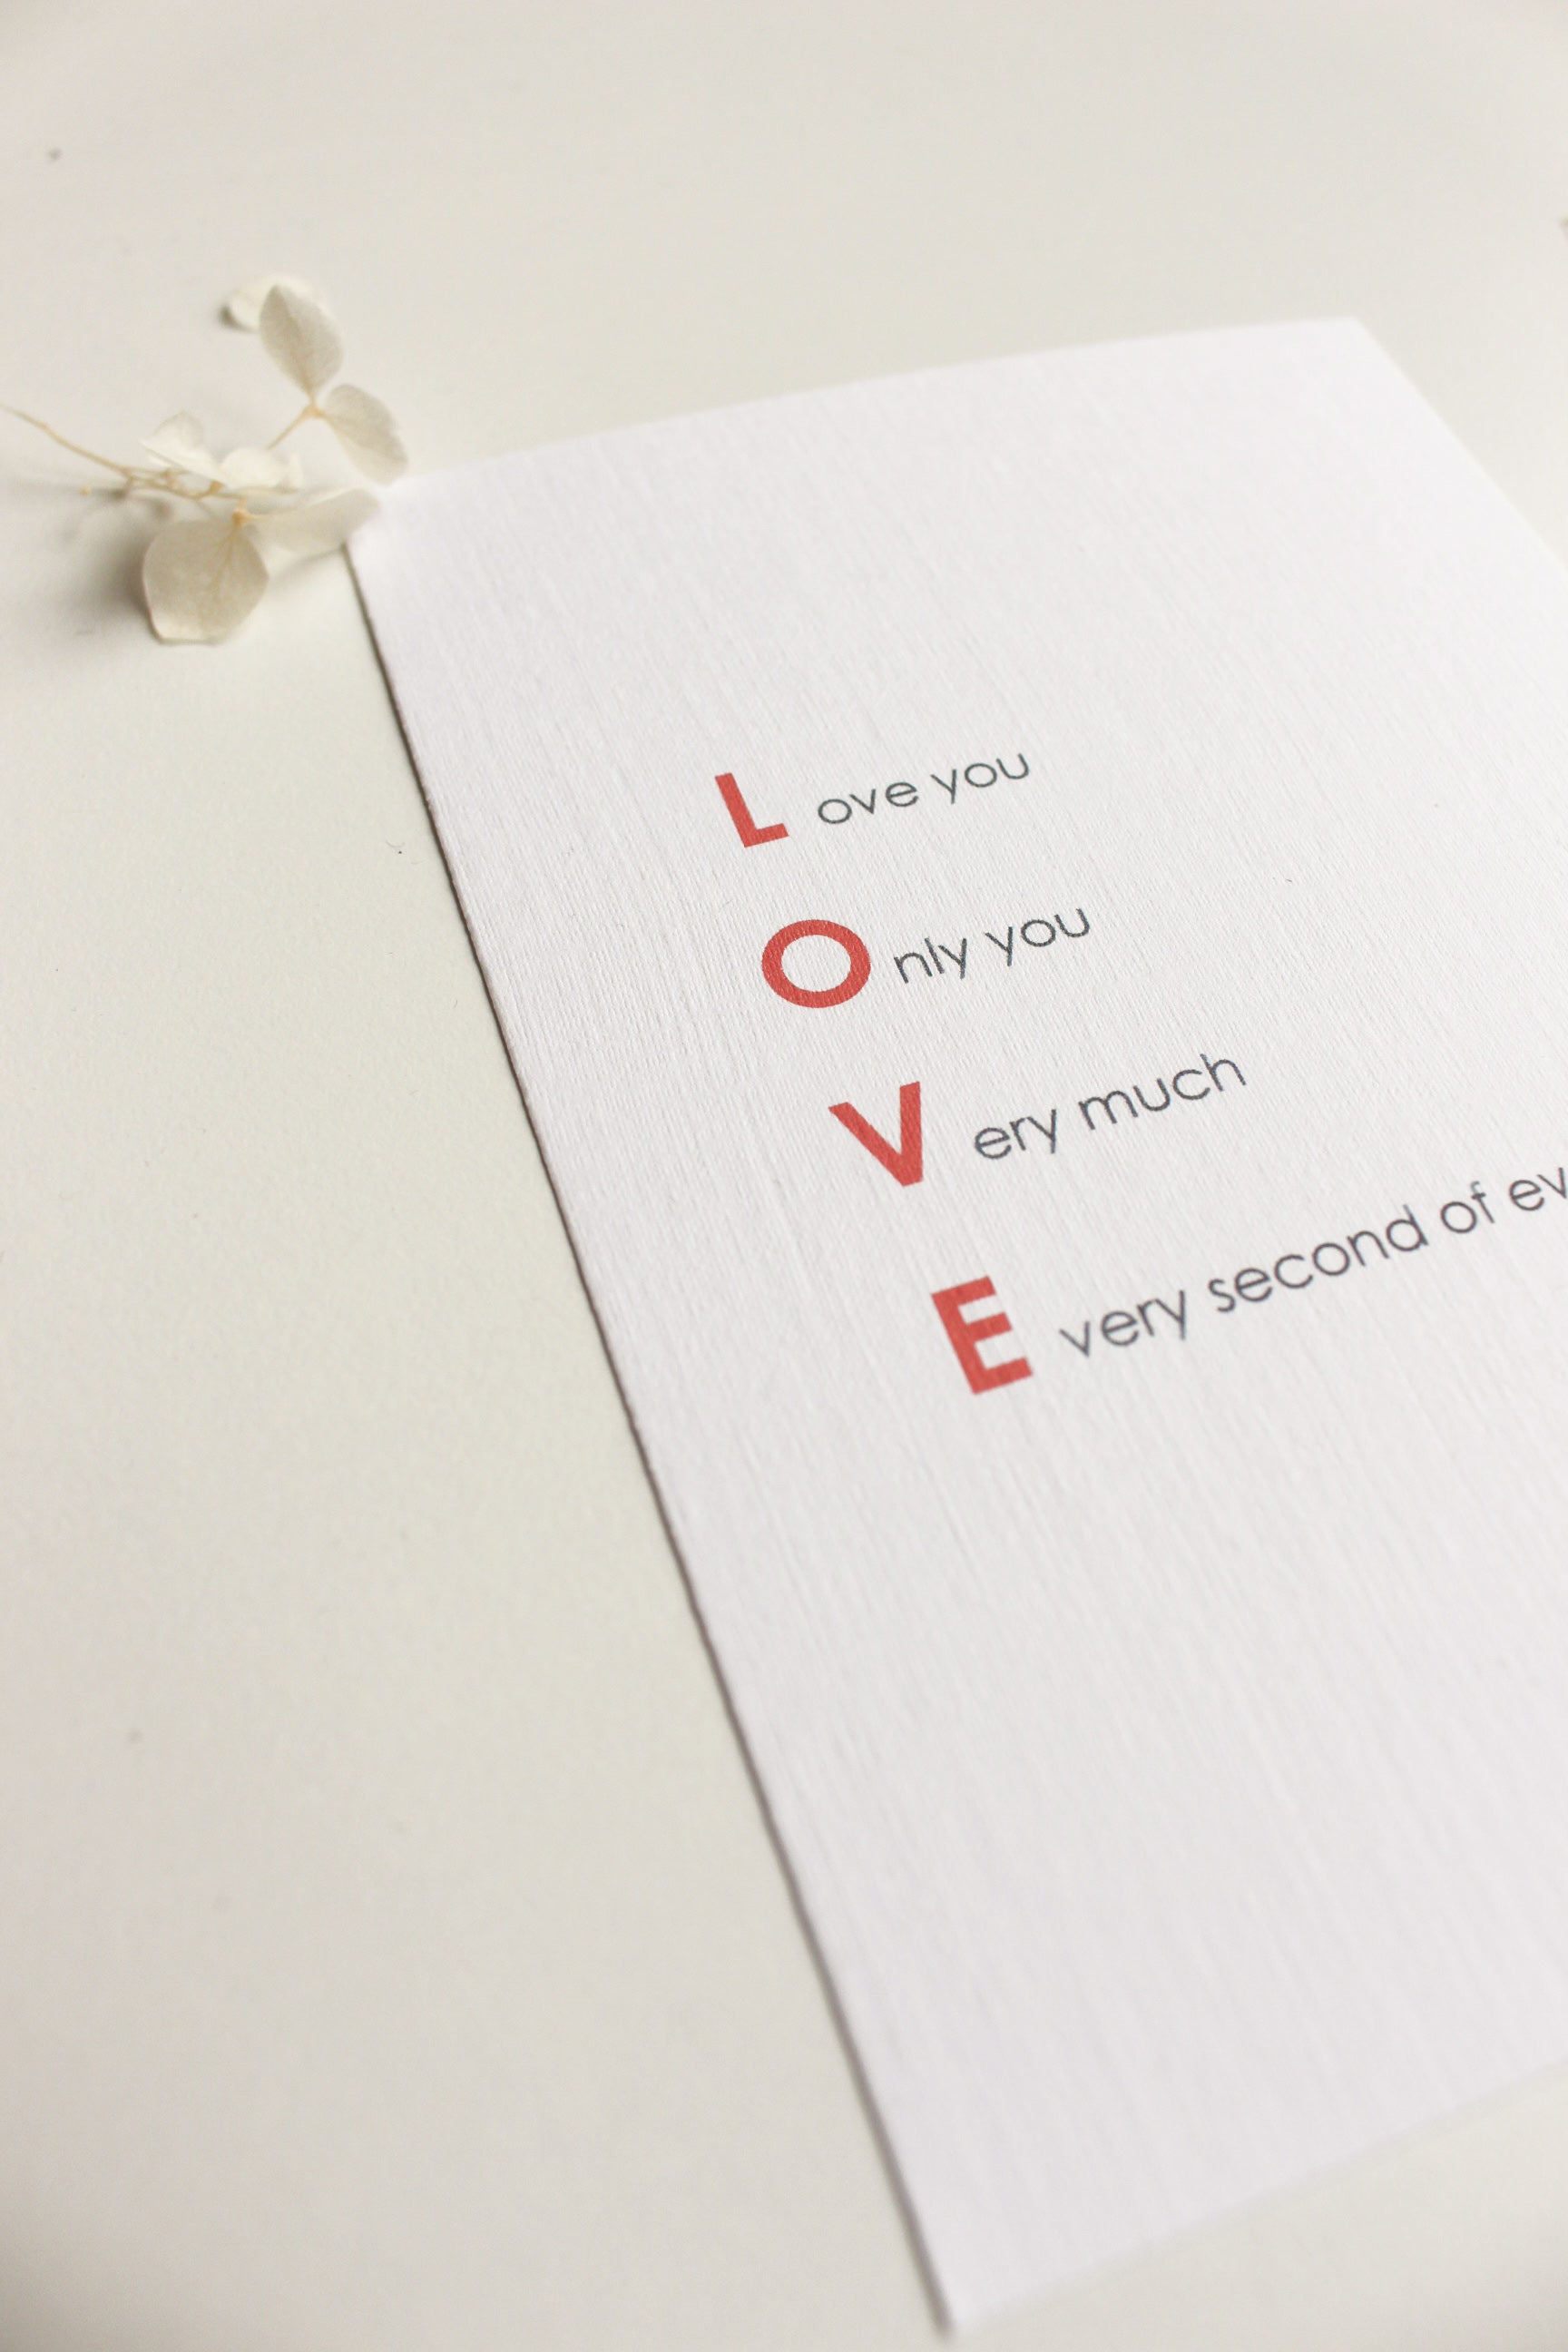 L ove you
O nly you
V ery much
E very second of ev